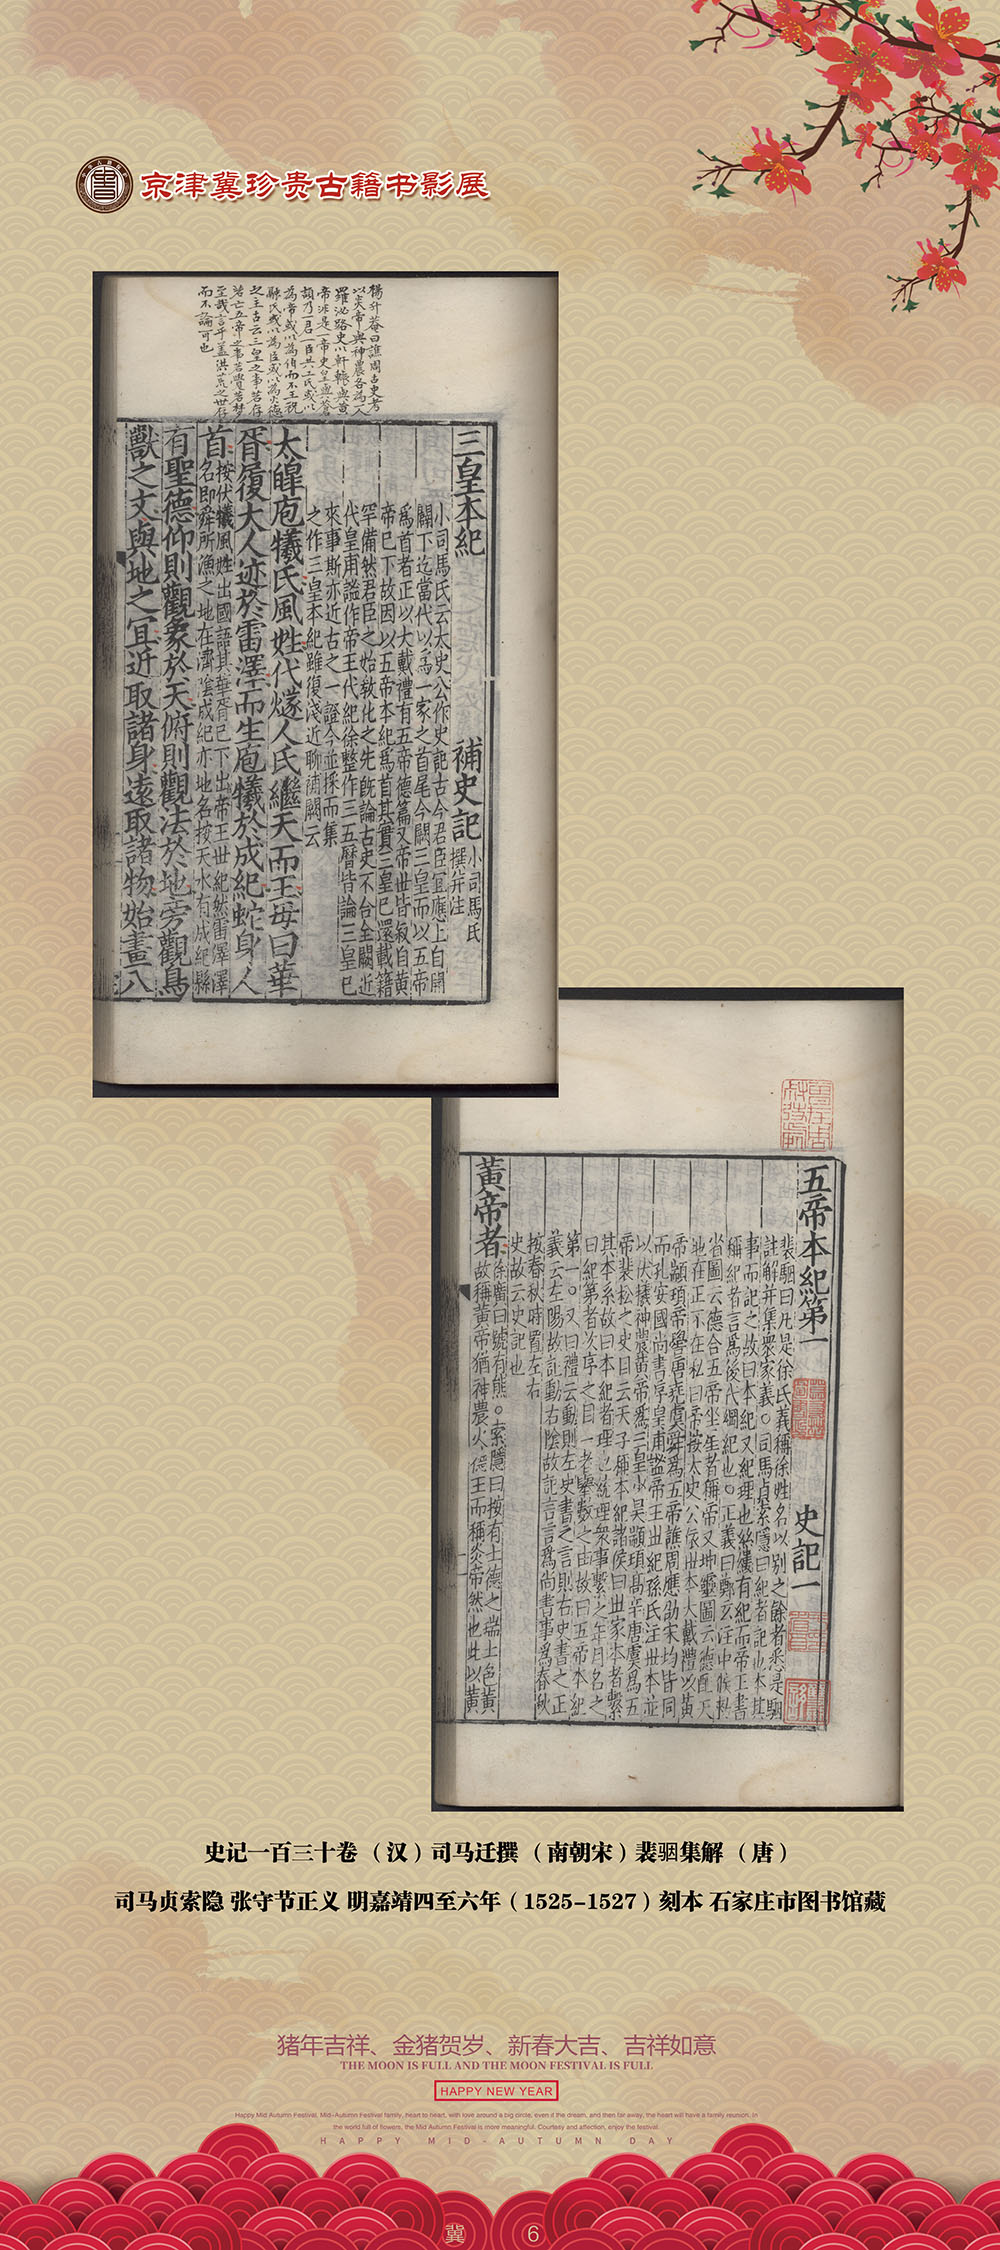 京津冀珍贵古籍书影展
楊升菴曰譙周古史考
以炎帝與神農各為一人
羅泌路史以軒轅與黃
帝非是一帝史皇與蒼
頡乃一君一臣共工氏或以
為帝或以為伯而不王祝
融氏或以為臣或以為火德
之主古云三皇之事若存
若亡五帝之事若覺若夢
至哉言乎蓋洪荒之世存
而不論可也
三皇本紀 補史記 小司馬氏
撰并注
小司馬氏云太史公作史記古今君臣宜應上自開
闢下迄當代以爲一家之首尾今闕三皇而以五帝
爲首者正以大戴禮有五帝德篇又帝世皆叙自黃
帝已下故因以五帝本紀爲首其實三皇已還載籍
罕備然君臣之始教化之先既論古史不合全闕近
代皇甫謐作帝王代紀徐整作三五曆皆論三皇已
來事斯亦近古之一證今並採而集
之作三皇本紀雖復淺近聊補闕云
太皥庖犧氏風姓代燧人氏繼天而王母曰華
胥履大人迹於雷澤而生庖犧於成紀蛇身人
首 按伏犧風姓出國語其華胥已下出帝王世紀然雷澤澤
名即舜所漁之地在濟陰成紀亦地名按天水有成紀縣
有聖德仰則觀象於天俯則觀法於地旁觀鳥
獸之文與地之宜近取諸身遠取諸物始畫八
五帝本紀第一 史記一
裴駰曰凡是徐氏義稱徐姓名以別之餘者悉是駰
註解并集衆家義○司馬貞索隱曰紀者記也本其
事而記之故曰本紀又紀理也絲縷有紀而帝王書
稱紀者言爲後代綱紀也○正義曰鄭玄注中候敕
省圖云德合五帝坐星者稱帝又坤靈圖云德配天
地在正不在私曰帝按太史公依世本大戴禮以黃
帝顓頊帝嚳唐堯虞舜爲五帝譙周應劭宋均皆同
而孔安國尚書序皇甫謐帝王世紀孫氏注世本並
以伏犧神農黃帝爲三皇少昊顓頊高辛唐虞爲五
帝裴松之史目云天子稱本紀諸侯曰世家本者繫
其本系故曰本紀者理也統理衆事繫之年月名之
曰紀第者次序之目一者舉數之由故曰五帝本紀
第一○又曰禮云動則左史書之言則右史書之正
義云左陽故記動右陰故記言言爲尚書事爲春秋
按春秋時置左右
史故云史記也
黃帝者 徐廣曰號有熊○索隱曰按有土德之瑞土色黃
故稱黃帝猶神農火德王而稱炎帝然也此以黃
史记一百三十卷 （汉）司马迁撰 （南朝宋）裴骃集解 （唐）
司马贞索隐 张守节正义 明嘉靖四至六年（1525–1527）刻本 石家庄市图书馆藏
猪年吉祥、金猪贺岁、新春大吉、吉祥如意
THE MOON IS FULL AND THE MOON FESTIVAL IS FULL
HAPPY NEW YEAR
Happy Mid Autumn Festival, Mid-Autumn Festival family, heart to heart, with love around a big circle, even if the dream, and then far away, the heart will have a family reunion. In
the world full of flowers, the Mid Autumn Festival is more meaningful. Courtesy and affection, enjoy the festival.
HAPPY MID-AUTUMN DAY
冀
6